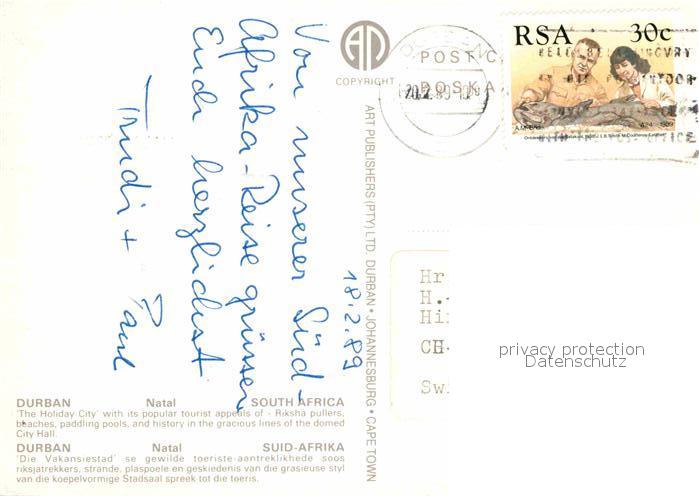 Von unserer Süd-
Afrika-Reise grüssen
Euch herzlichst
Trudi + Paul
18.2.89
COPYRIGHT
ART PUBLISHERS (PTY) LTD. DURBAN • JOHANNESBURG • CAPE TOWN
DURBAN Natal SOUTH AFRICA
'The Holiday City' with its popular tourist appeals of - Riksha pullers,
beaches, paddling pools, and history in the gracious lines of the domed
City Hall.
DURBAN Natal SUID-AFRIKA
'Die Vakansiestad' se gewilde toeriste-aantreklikhede soos
riksjatrekkers, strande, plaspoele en geskiedenis van die grasieuse styl
van die koepelvormige Stadsaal spreek tot die toeris.
POST C
POSKA
RSA 30c
POST OFFICE
Hr
H.
Hi
CH-
Sw
privacy protection
Datenschutz